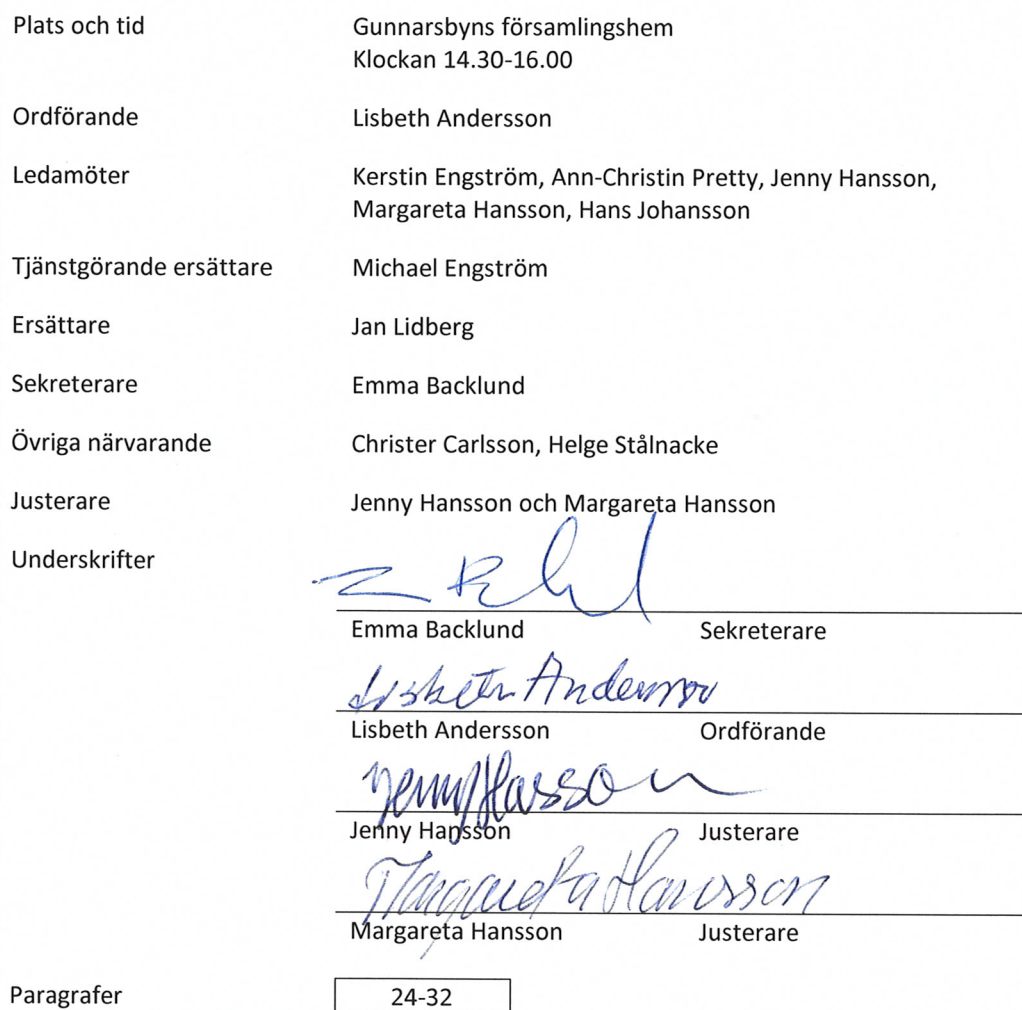 Plats och tid Gunnarsbyns församlingshem
Klockan 14.30-16.00
Ordförande Lisbeth Andersson
Ledamöter Kerstin Engström, Ann-Christin Pretty, Jenny Hansson,
Margareta Hansson, Hans Johansson
Tjänstgörande ersättare Michael Engström
Ersättare Jan Lidberg
Sekreterare Emma Backlund
Övriga närvarande Christer Carlsson, Helge Stålnacke
Justerare Jenny Hansson och Margareta Hansson
Underskrifter
Emma Backlund Sekreterare
Lisbeth Andersson
Lisbeth Andersson Ordförande
Jenny Hansson
Jenny Hansson Justerare
Margareta Hansson
Margareta Hansson Justerare
Paragrafer 24-32